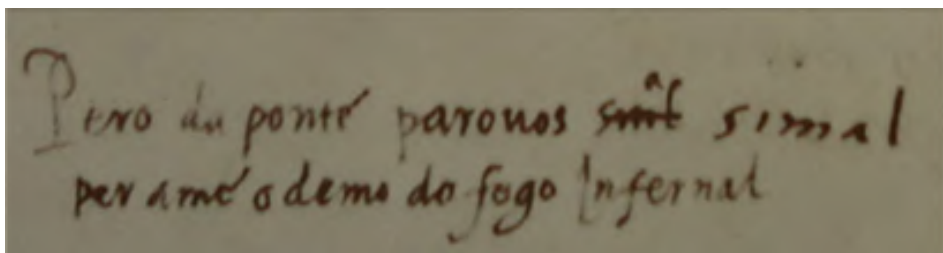 Pero da ponté parouos simal
per amé o demo do fogo Infernal